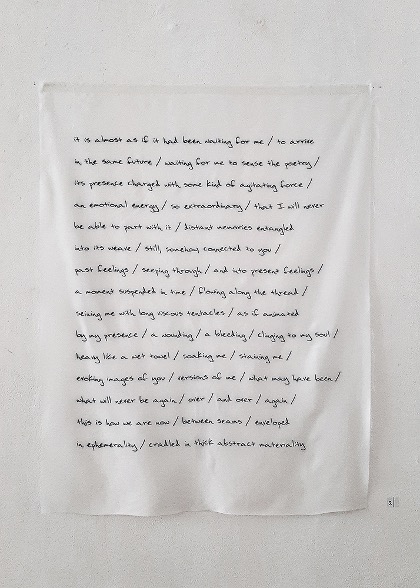 it is almost as if it had been waiting for me / to arrive
in the same future / waiting for me to sense the poetry /
its presence charged with some kind of agitating force /
an emotional energy / so extraordinary / that I will never
be able to part with it / distant memories entangled
into its weave / still, somehow, connected to you /
past feelings / seeping through / and into present feelings /
a moment suspended in time / flowing along the thread /
seizing me with long viscous tentacles / as if animated
by my presence / a wounding / a bleeding / clinging to my soul /
heavy like a wet towel / soaking me / staining me /
evoking images of you / versions of me / what may have been /
what will never be again / over / and over / again /
this is how we are now / between seams / enveloped
in ephemerality / cradled in thick abstract materiality